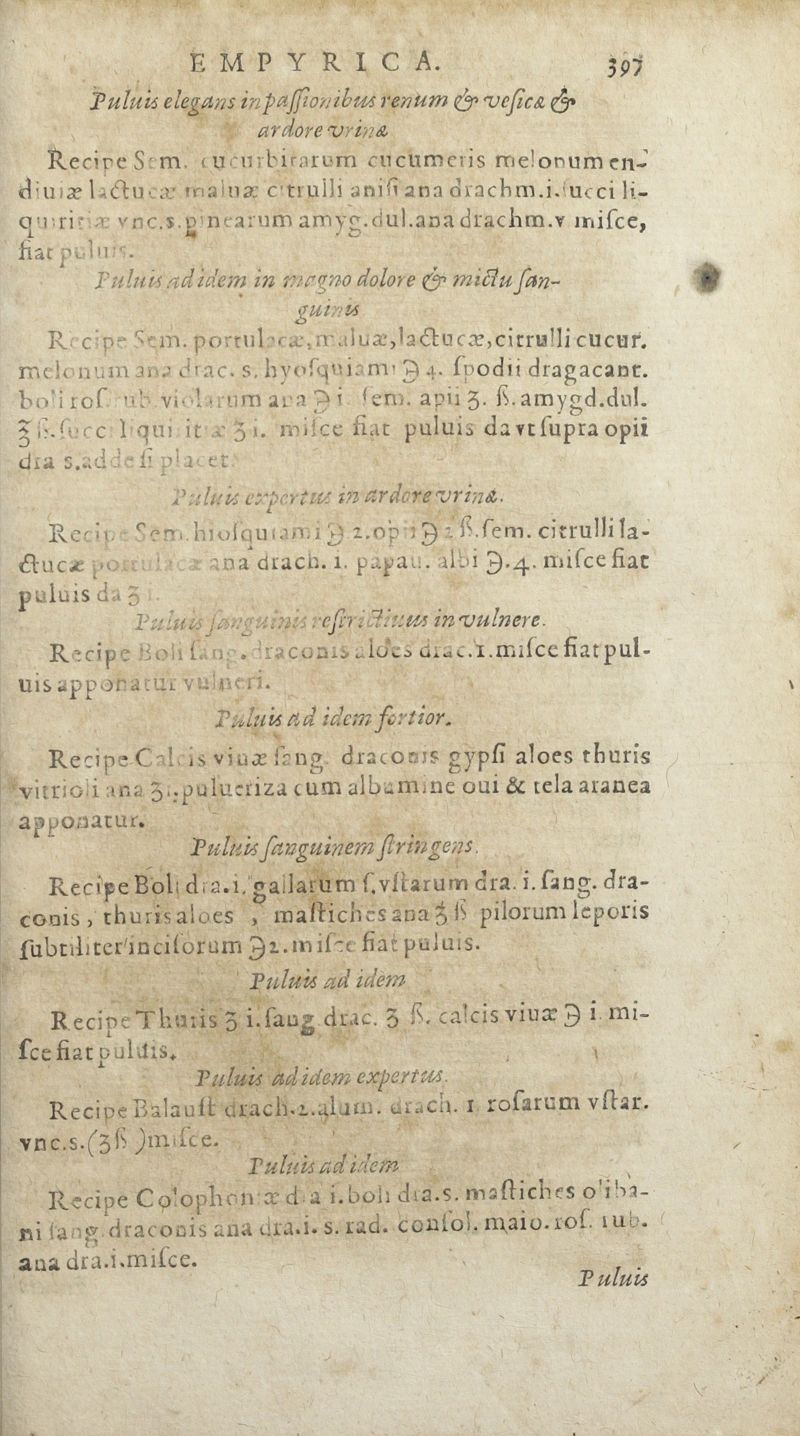 EMPYRICA. 397
Puluis elegans in passionibus renum & vesicæ &
ardore vrinæ
Recipe Sem. cucurbitarum cucumeris melonum en-
diuiæ lactucæ maluæ citrulli anisi ana drachm.i.succi li-
quiritiæ vnc.s.pinearum amyg.dul.ana drachm.v misce,
fiat puluis.
Puluis ad idem in magno dolore & mictu san-
guinis
Recipe Sem. portulacæ, maluæ, lactucæ, citrulli cucur.
melonum ana drac. s. hyosquiami ℈ 4. spodii dragacant.
boli ros. rub. violarum ana ℈ i sem. apii ʒ. ß. amygd.dul.
℥ ß. succ liquiritiæ ʒ i. misce fiat puluis da vt supra opii
dra s.adde si placet.
Puluis expertus in ardore vrinæ.
Recipe Sem. hiosquiami ℈ 2. opii ℈ ß. sem. citrulli la-
ctucæ portulacæ ana drach. 1. papau. albi ℈.4. misce fiat
puluis da ʒ
Puluis sanguinis restrictiuus in vulnere.
Recipe Boli sang. draconis aloes drac.1.misce fiat pul-
uis apponatur vulneri.
Puluis ad idem fortior.
Recipe Calcis viuæ sang. draconis gypsi aloes thuris
vitrioli ana ʒi. pulueriza cum albumine oui & tela aranea
apponatur.
Puluis sanguinem stringens.
Recipe Boli dra.i. gallarum s. vstarum dra. i. sang. dra-
conis, thuris aloes, mastiches ana ʒ ß pilorum leporis
subtiliter inciforum ℈2. misce fiat puluis.
Puluis ad idem
Recipe Thuris ʒ i. saug drac. ʒ ß. calcis viuæ ℈ i. mi-
sce fiat puluis.
Puluis ad idem expertus.
Recipe Balaust drach.2. alum. drach. 1 rosarum vstar.
vnc.s.(ʒß) misce.
Puluis ad idem
Recipe Colophoniæ dra i. boli dra.s. mastiches oliba-
ni sang. draconis ana dra.i. s. rad. consol. maio. ros. rub.
ana dra.i.misce.
Puluis